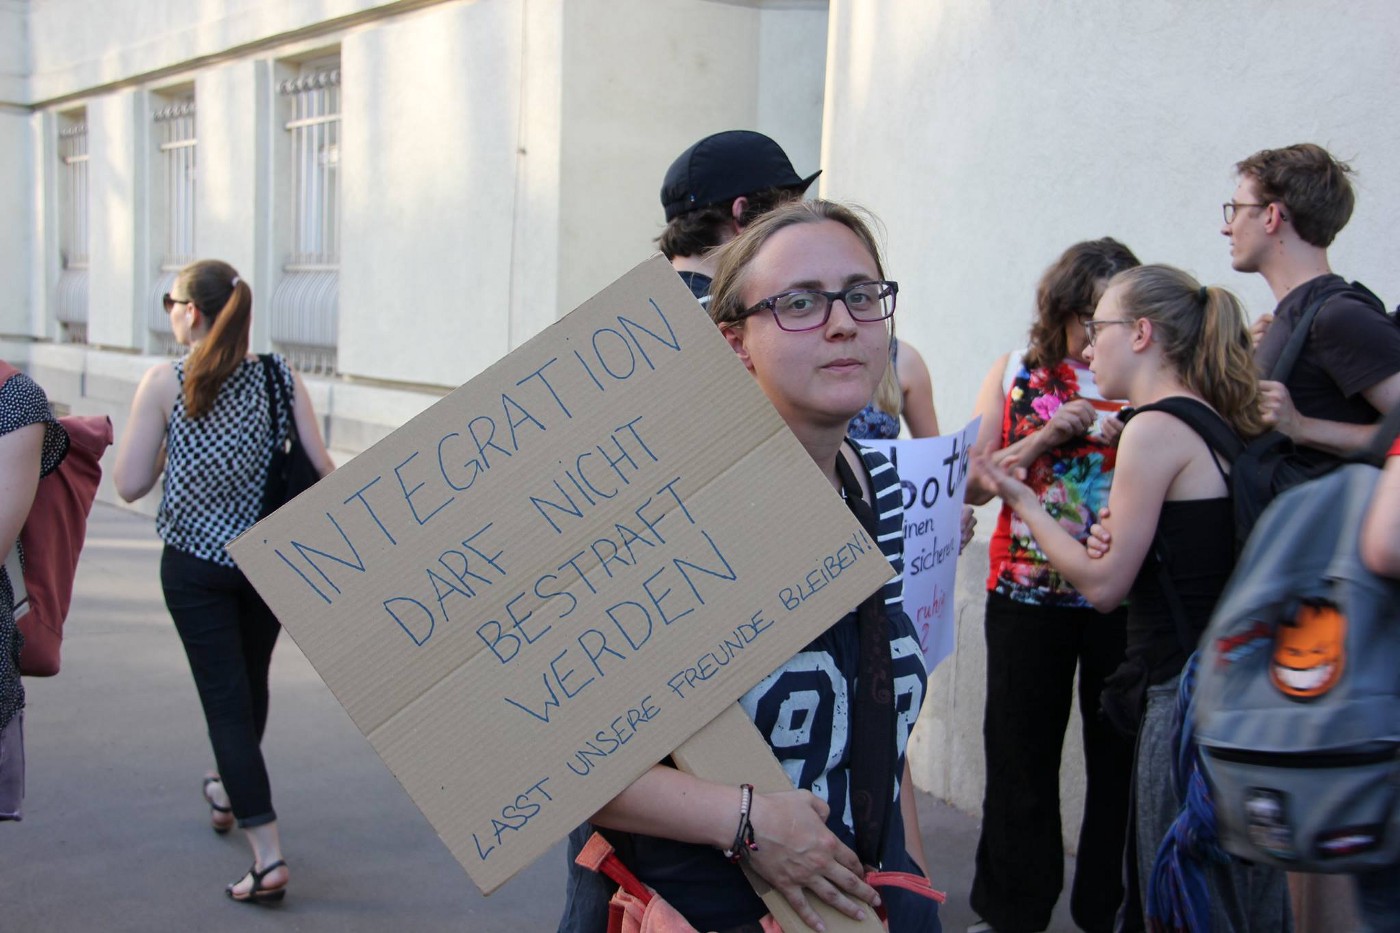 INTEGRATION
DARF NICHT
BESTRAFT
WERDEN
LASST UNSERE FREUNDE BLEIBEN!
sicheren
ruhig
2
98